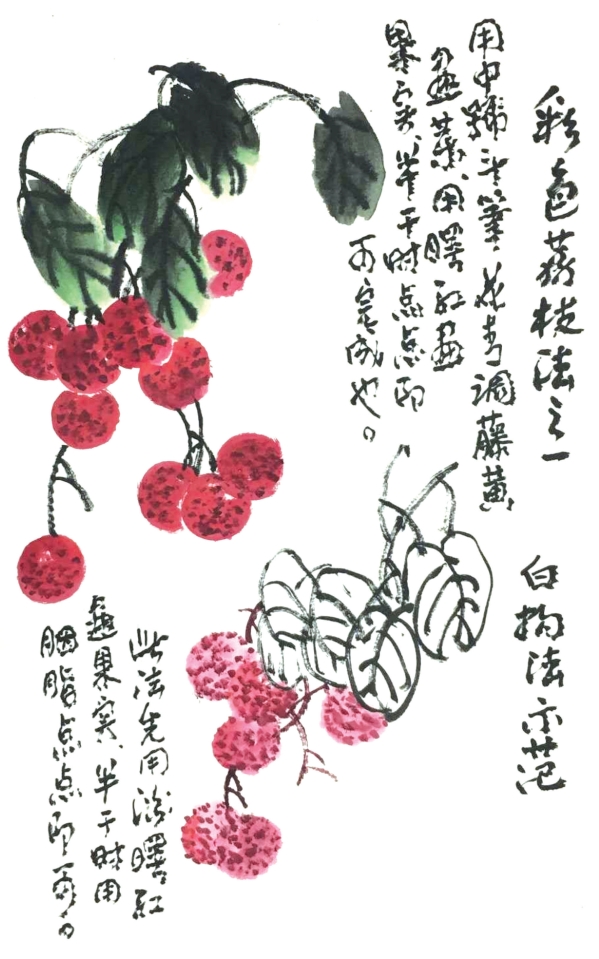 彩色荔枝法之一
用中楷羊笔、花青调藤黄
画叶、用曙红画
果实、半干时点点即
可完成也。
白描法示范
此法先用淡曙红
画果实、半干时用
胭脂点点即可。